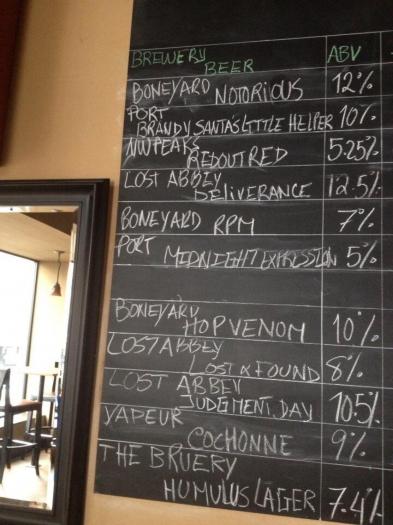 BREWERY BEER ABV
BONEYARD NOTORIOUS 12%
PORT BRANDY SANTA'S LITTLE HELPER 10%
NW PEAKS REDOUT RED 5.25%
LOST ABBEY DELIVERANCE 12.5%
BONEYARD RPM 7%
PORT MIDNIGHT EXPRESSION 5%
BONEYARD HOP VENOM 10%
LOST ABBEY LOST & FOUND 8%
LOST ABBEY JUDGMENT DAY 10.5%
VAPEUR COCHONNE 9%
THE BRUERY HUMULUS LAGER 7.4%